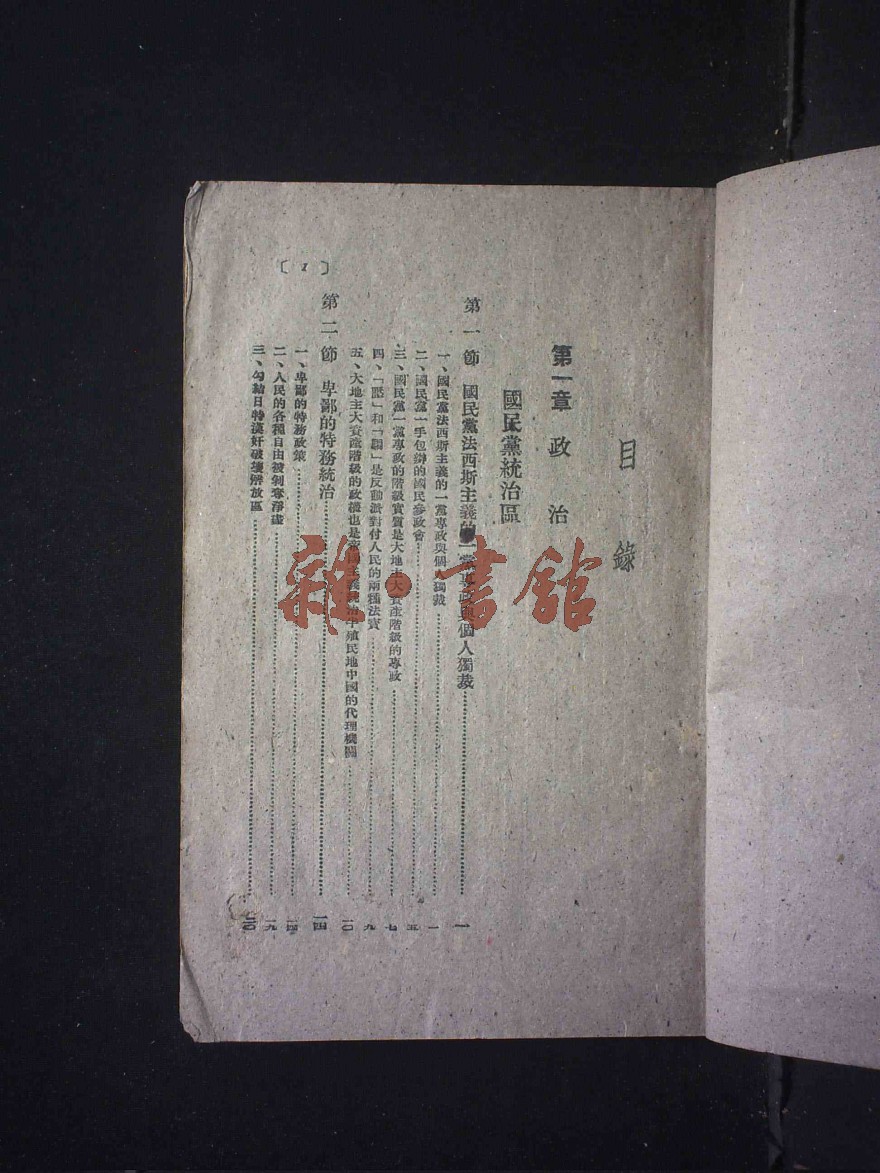 目錄
第一章 政治
國民黨統治區
第一節 國民黨法西斯主義的一黨專政與個人獨裁……一
一、國民黨法西斯主義的一黨專政與個人獨裁……一
二、國民黨一手包辦的國民參政會……五
三、國民黨一黨專政的階級實質是大地主大資產階級的專政……七
四、「壓」和「騙」是反動派對付人民的兩種法寶……九
五、大地主大資產階級的政權也是帝國主義統治半殖民地中國的代理機關……一〇
第二節 卑鄙的特務統治……一四
一、卑鄙的特務政策……一四
二、人民的各種自由被剝奪淨盡……一九
三、勾結日特漢奸破壞解放區……二〇
〔1〕
雜·書館